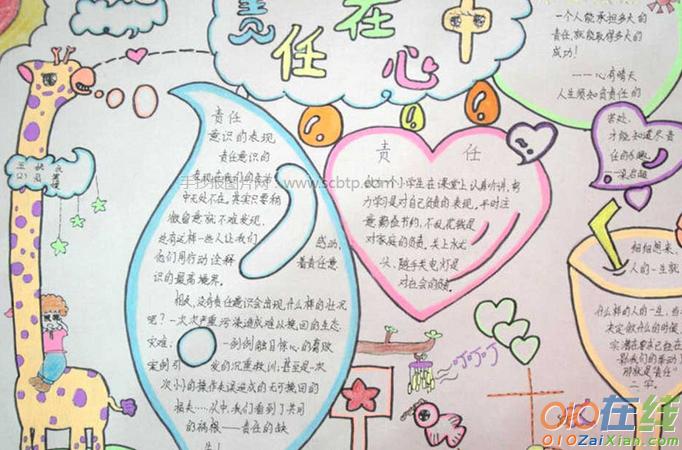 责任在心中
一个人能承担多大的
责任，就能取得多大的
成功！
——心有晴天
人生须知负责任的
苦处，
才能知道尽责
任的乐趣。
——梁启超
责任
意识的表现
责任意识的
表现在我们的生活
中无处不在，其实只要稍
微留意就不难发现，
处有这样一些人让我们 感动，
他们用行动诠释 着责任意
识的最高境界。
相反，没有责任意识会出现什么样的状况
呢？一次次严重污染造成难以挽回的生态
灾难； 一例例触目惊心的腐败
案例引 发的沉重教训；甚至是一次
次小的操作失误造成的无可挽回的
损失……从中，我们看到了共同
的祸根——责任的缺
失！
责 任
做一个小学生在课堂上认真听讲，努
力学习是对自己负责的表现，平时注
意勤俭节约，不乱花钱是
对家庭的负责，关上水龙
头，随手关电灯是
对社会的负责。
细细想来，
人的一生就
什么样的人的一生，当
决定做什么的时候，
叮叮叮
手抄报图片网：www.scbtp.com
010在线
010ZaiXian.com